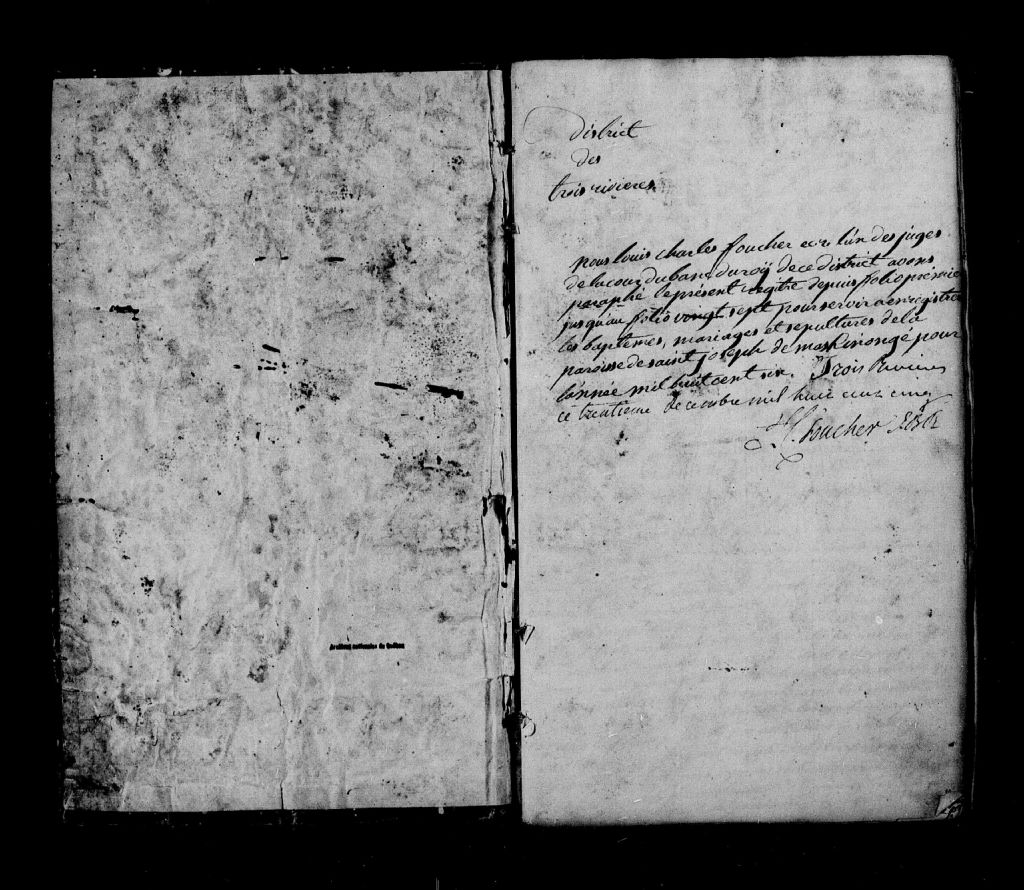 Archives nationales du Québec
district
des
trois rivieres
nous louis charles foucher ecr l'un des juges
de la cour du banc du roÿ de ce district avons
paraphé le présent registre depuis folio premier
jusqu'au folio vingt sept pour servir a enregistrer
les baptemes, mariages et sepultures de la
paroisse de saint joseph de maskinongé pour
l'année mil huit cent six. Trois Rivieres
ce trentieme decembre mil huit cent cinq
L. C. foucher